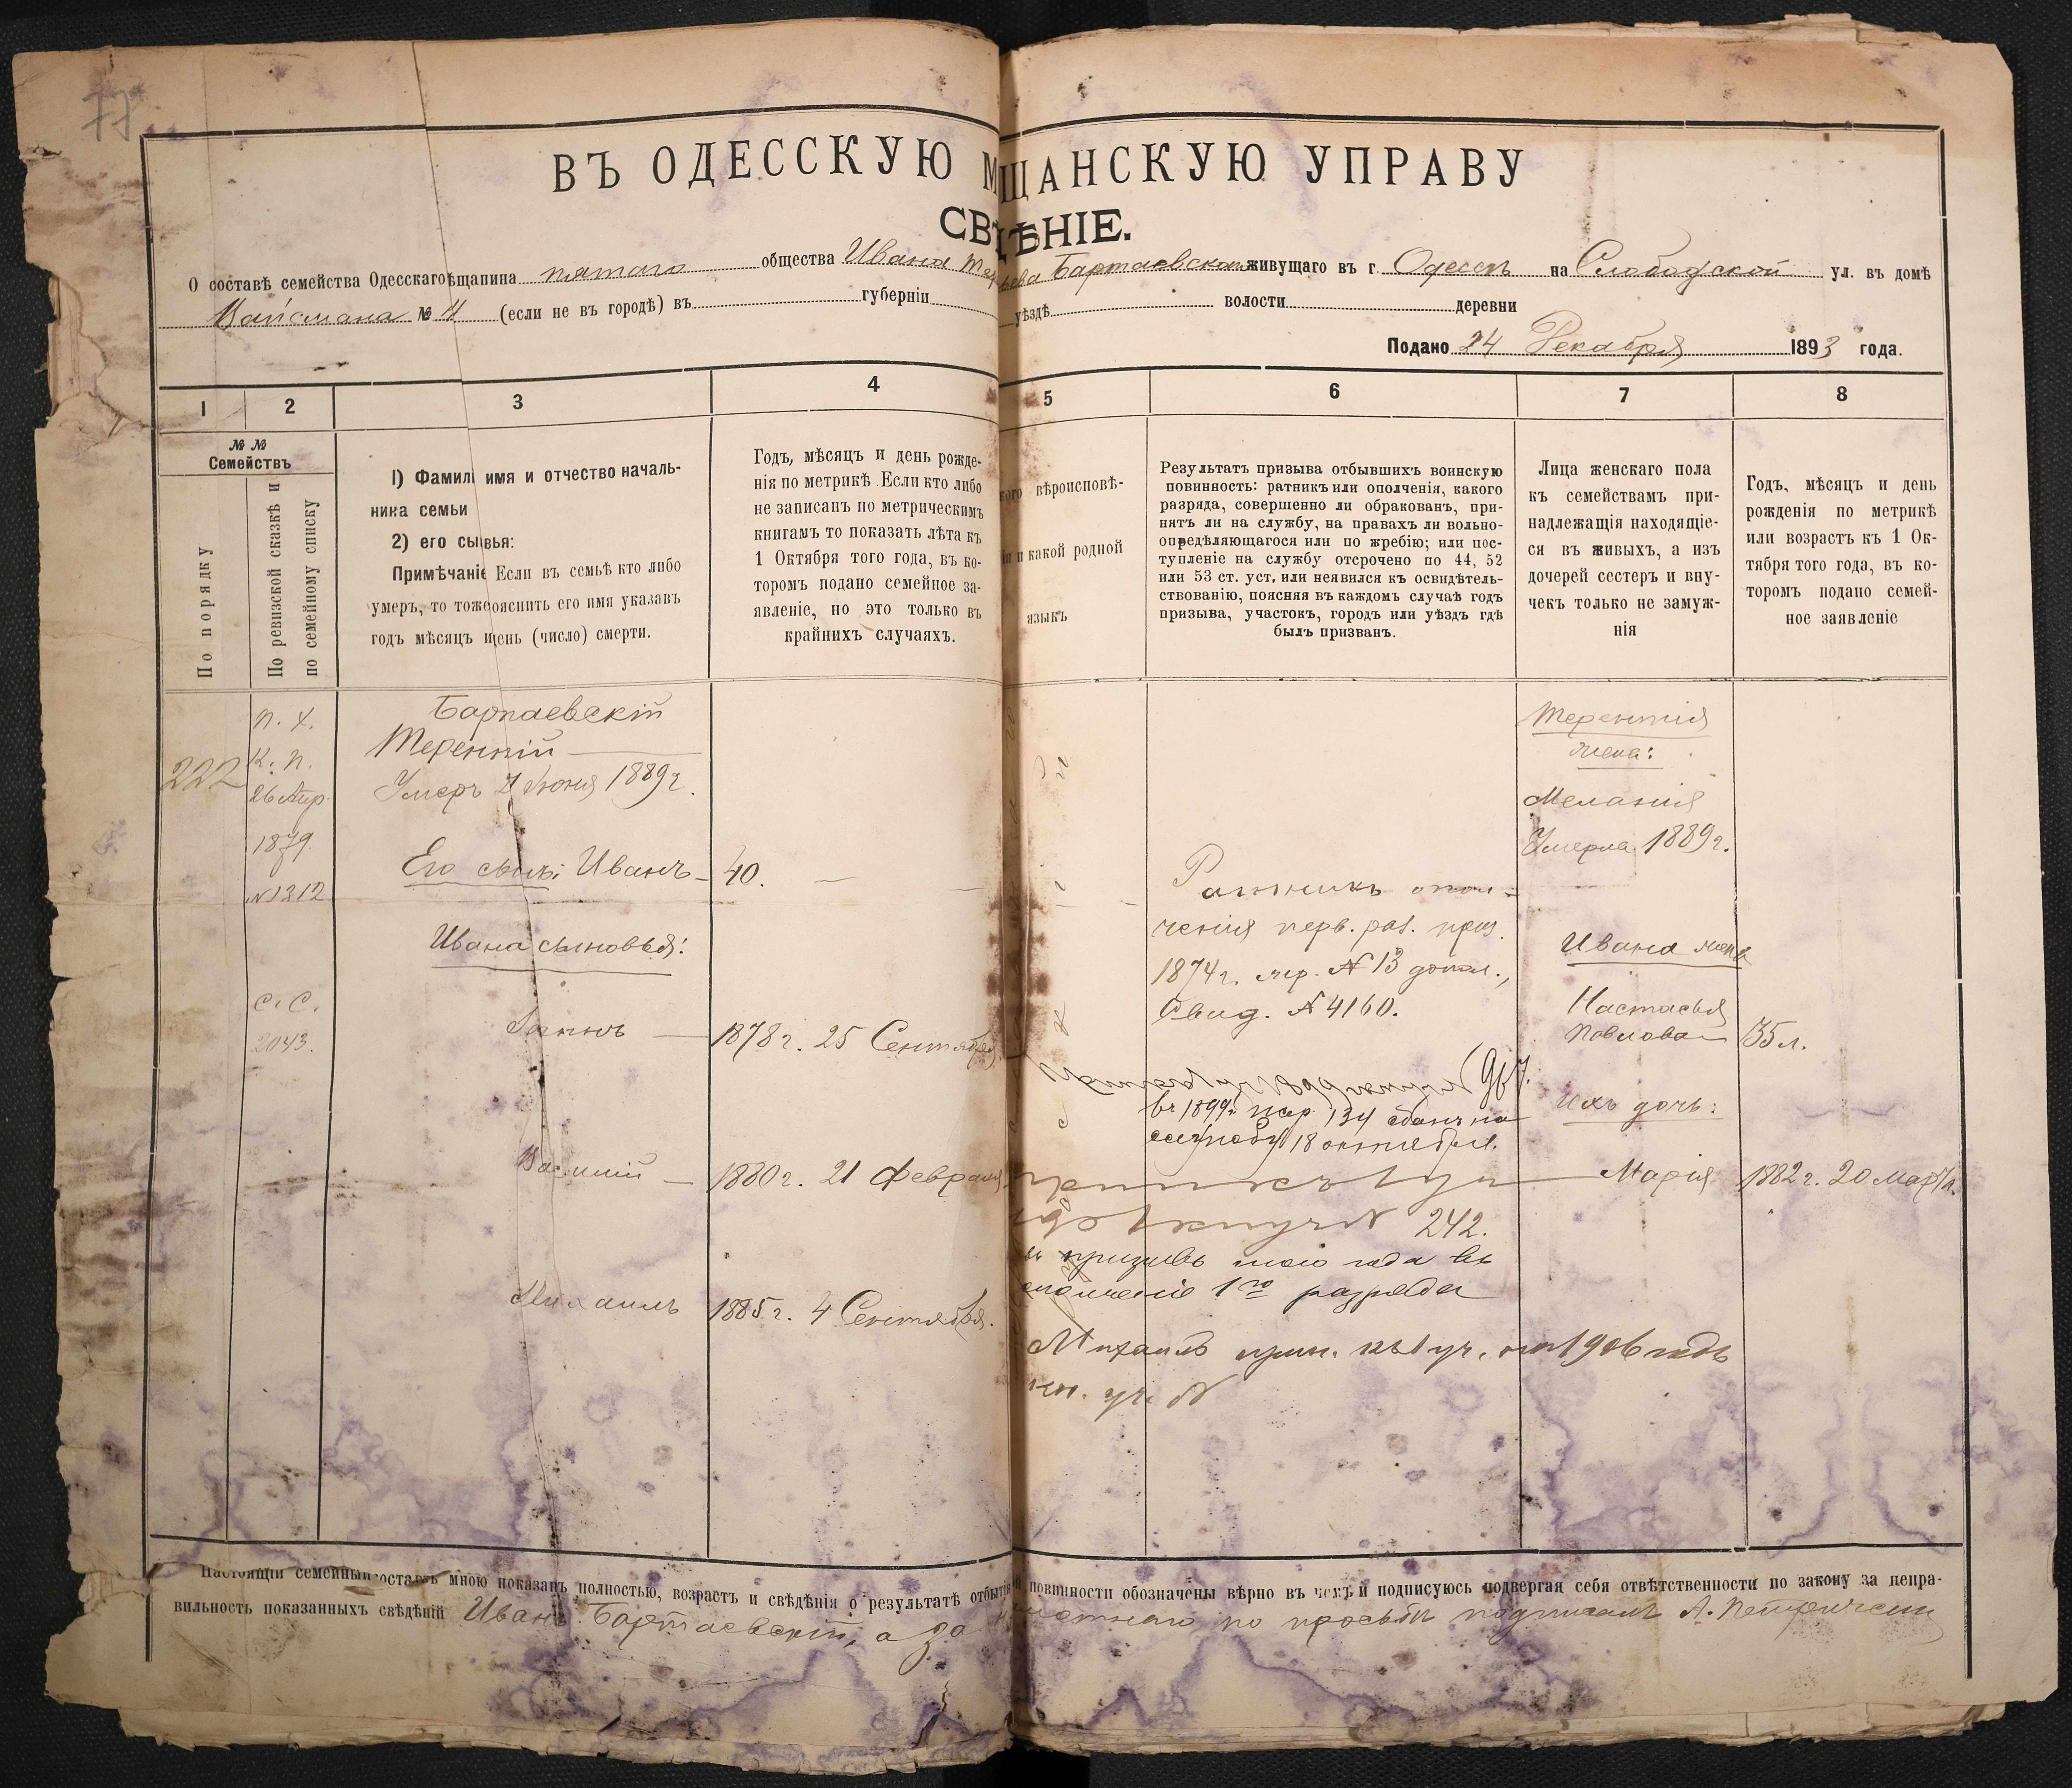 77
ВЪ ОДЕССКУЮ М ЩАНСКУЮ УПРАВУ
СВѢДѢНІЕ.
О составѣ семейства Одесскаго ѣщанина пятаго общества Ивана Бартаевскаго живущаго въ г. Одессѣ на Слободской ул. въ домѣ
Вайсмана № 4 (если не въ городѣ) въ губерніи уѣздѣ волости деревни
Подано 24 Декабря 1893 года.
1 2 3 4 5 6 7 8
№ №
Семействъ
По порядку
По ревизской сказкѣ и
по семейному списку
1) Фамил имя и отчество началь-
ника семьи
2) его сыновья:
Примѣчаніе Если въ семьѣ кто либо
умеръ, то тоже ояснить его имя указавъ
годъ мѣсяцъ и день (число) смерти.
Годъ, мѣсяцъ и день рожде-
нія по метрикѣ. Если кто либо
не записанъ по метрическимъ
книгамъ то показать лѣта къ
1 Октября того года, въ ко-
торомъ подано семейное за-
явленіе, но это только въ
крайнихъ случаяхъ.
вѣроисповѣ-
и какой родной
языкъ
Результатъ призыва отбывшихъ воинскую
повинность: ратникъ или ополченія, какого
разряда, совершенно ли обракованъ, при-
нятъ ли на службу, на правахъ ли вольно-
опредѣляющагося или по жребію; или пос-
тупленіе на службу отсрочено по 44, 52
или 53 ст. уст, или неявился къ освидѣтель-
ствованію, поясняя въ каждомъ случаѣ годъ
призыва, участокъ, городъ или уѣздъ гдѣ
былъ призванъ.
Лица женскаго пола
къ семействамъ при-
надлежащія находящіе-
ся въ живыхъ, а изъ
дочерей сестеръ и вну-
чекъ только не замуж-
нія
Годъ, мѣсяцъ и день
рожденія по метрикѣ
или возрастъ къ 1 Ок-
тября того года, въ ко-
торомъ подано семей-
ное заявленіе
222
п. х.
К. п.
26 Апр.
1879
№1312
С. С.
2043.
Бартаевскій
Терентій
Умеръ 7 Іюня 1889 г.
Его сынъ: Иванъ 40.
Ратникъ опол-
ченія перв. раз. приз.
1874 г. жер. № 13 допол.,
Свид. № 4160.
Терентія
жена:
Меланія
Умерла 1889 г.
Ивана сыновья:
Ивана жена
Настасья
Павлова 35 л.
1878 г. 25 Сентября
967.
въ 1899 г. жер. 134
службу 18 октября.
Ихъ дочь:
Марія 1882 г. 20 Марта.
Василій 1880 г. 21 Февраля
242.
призывъ того года въ
ополченіе 1го разряда
Михаилъ 1885 г. 4 Сентября.
Михаилъ прип. къ 1 уч. 1906 годъ
уч. №
Настоящій семейный составъ мною показанъ полностью, возрастъ и свѣдѣнія о результатѣ отбытія повинности обозначены вѣрно въ чемъ и подписуюсь подвергая себя отвѣтственности по закону за непра-
вильность показанныхъ свѣдѣній Иванъ Бартаевскій, а за неграмотнаго по просьбѣ подписалъ А.